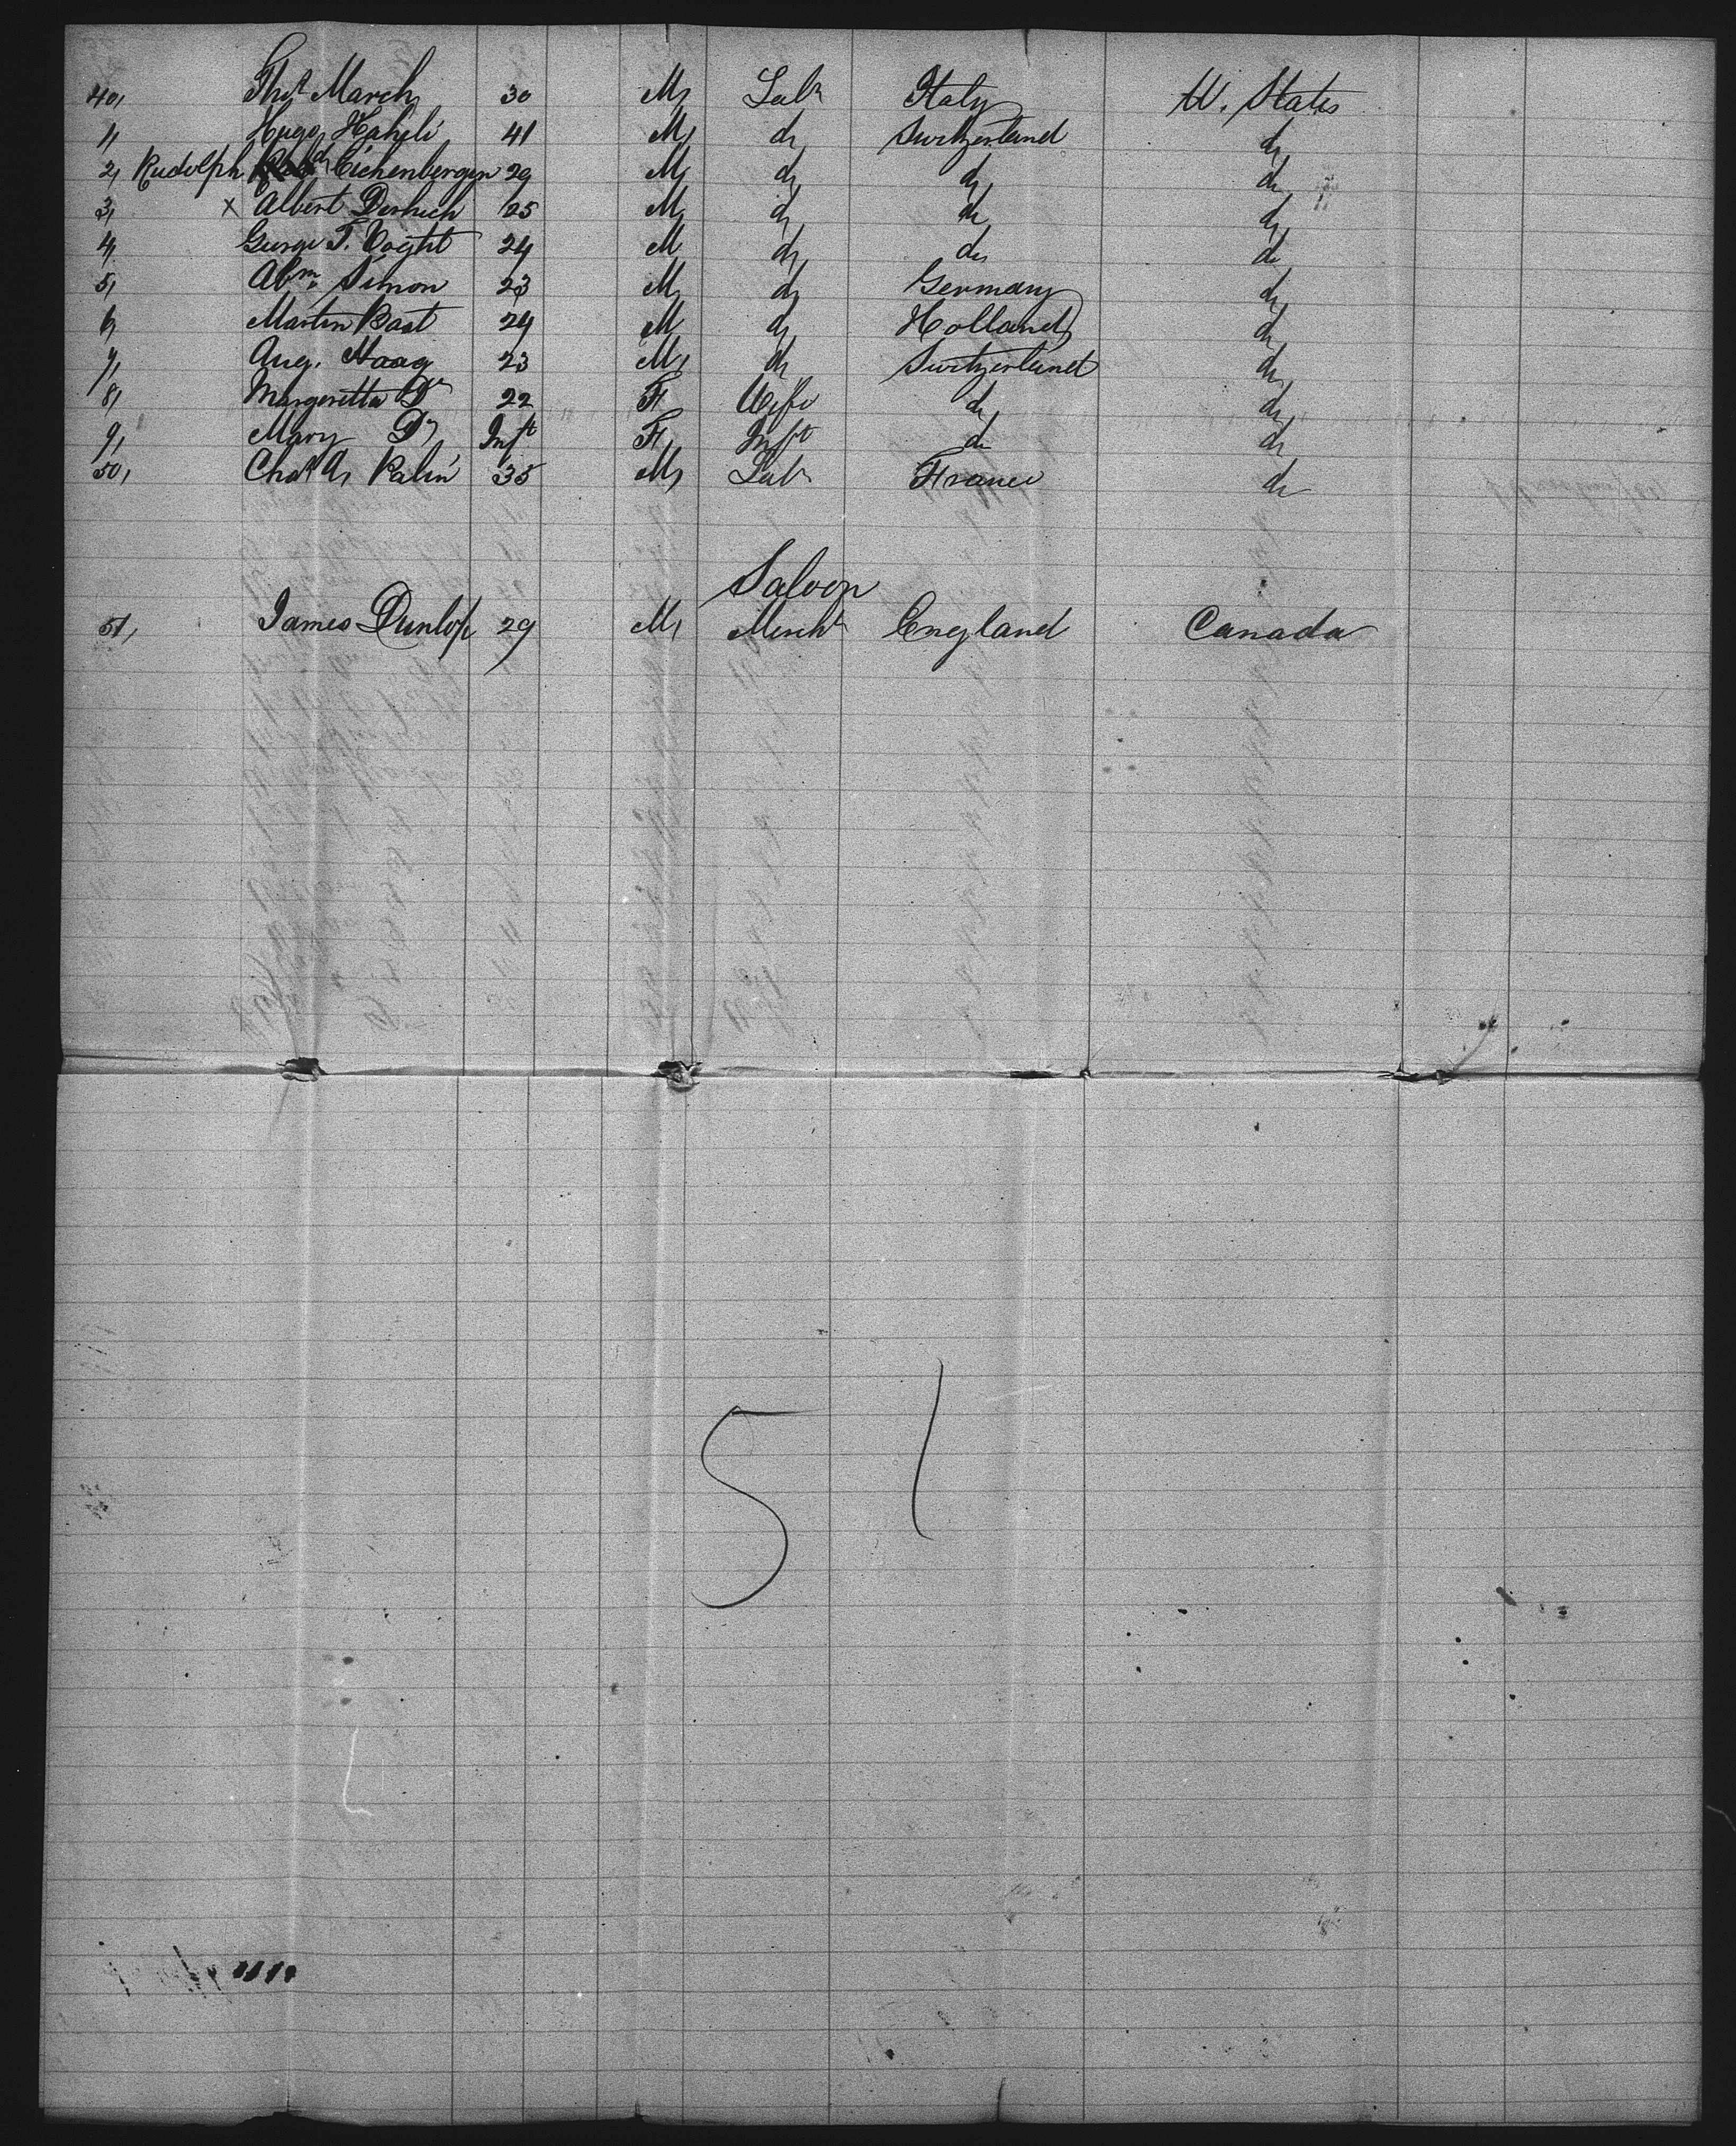 40, Thos March 30 M, Labr Italy U. States
1, Hugo Haheli 41 M, do Switzerland do
2, Rudolph Eichenberger 29 M, do do do
3, x Albert 25 M, do do do
4, George T. Voght 24 M do do do
5, Abm. Simon 23 M, do Germany do
6, Martin Bast 24 M do Holland do
7, Aug. Haag 23 M, do Switzerland do
8, Margeretta Do 22 F Wife do do
9, Mary Do Inft F, Inft do do
50, Chas A, 35 M, Labr France do
Saloon
51, James Dunlop 29 M, Mercht England Canada
51